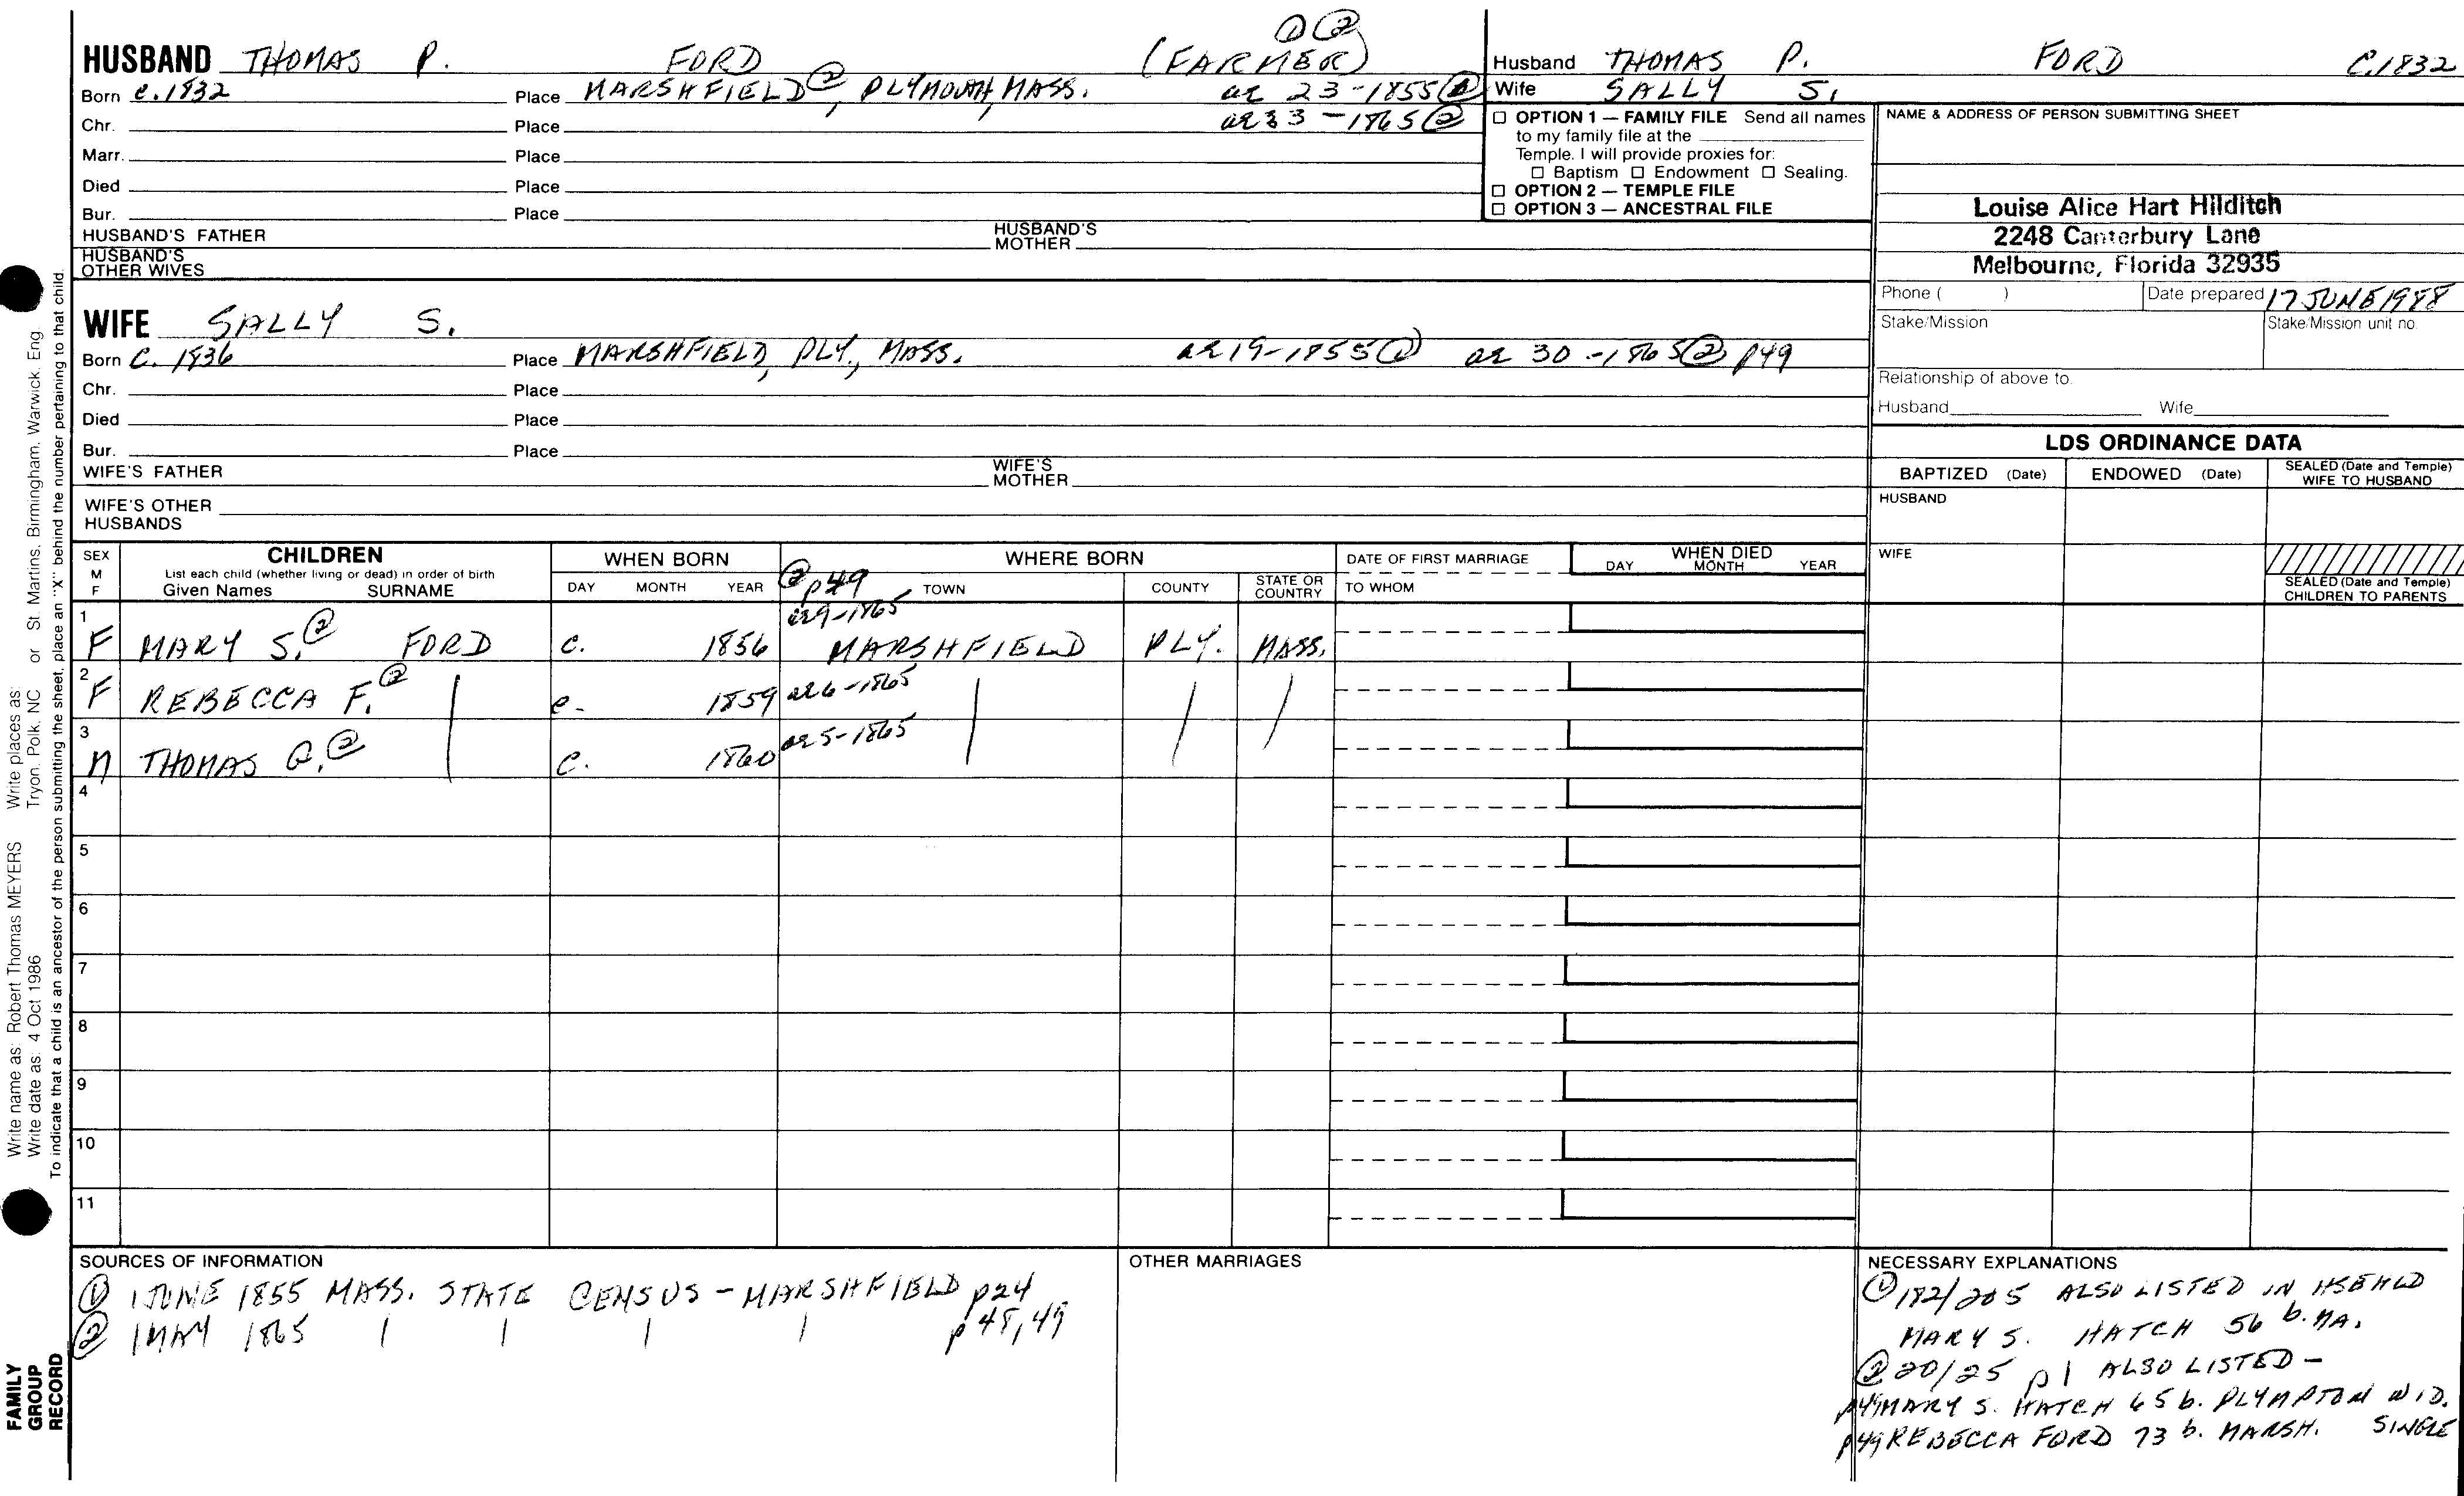 ①②
HUSBAND THOMAS P. FORD (FARMER)
Born c.1832 Place MARSHFIELD②, PLYMOUTH, MASS. ae 23-1855①
Chr. Place ae 33-1865②
Marr. Place
Died Place
Bur. Place
HUSBAND'S FATHER HUSBAND'S MOTHER
HUSBAND'S OTHER WIVES
WIFE SALLY S.
Born C. 1836 Place MARSHFIELD, PLY., MASS. ae 19-1855① ae 30-1865② p49
Chr. Place
Died Place
Bur. Place
WIFE'S FATHER WIFE'S MOTHER
WIFE'S OTHER HUSBANDS
Husband THOMAS P. FORD C.1832
Wife SALLY S.
☐ OPTION 1 — FAMILY FILE Send all names
to my family file at the
Temple. I will provide proxies for:
☐ Baptism ☐ Endowment ☐ Sealing.
☐ OPTION 2 — TEMPLE FILE
☐ OPTION 3 — ANCESTRAL FILE
NAME & ADDRESS OF PERSON SUBMITTING SHEET
Louise Alice Hart Hilditch
2248 Canterbury Lane
Melbourne, Florida 32935
Phone ( ) Date prepared 17 JUNE 1988
Stake/Mission Stake/Mission unit no.
Relationship of above to:
Husband Wife
LDS ORDINANCE DATA
BAPTIZED (Date) ENDOWED (Date) SEALED (Date and Temple) WIFE TO HUSBAND
HUSBAND
WIFE
SEALED (Date and Temple)
CHILDREN TO PARENTS
SEX M F CHILDREN WHEN BORN WHERE BORN DATE OF FIRST MARRIAGE WHEN DIED
List each child (whether living or dead) in order of birth
Given Names SURNAME DAY MONTH YEAR ② p49 TOWN COUNTY STATE OR COUNTRY TO WHOM DAY MONTH YEAR
1 F MARY S.② FORD c. 1856 ae 9-1865 MARSHFIELD PLY. MASS.
2 F REBECCA F.② | c. 1859 ae 6-1865 | | |
3 M THOMAS Q.② | c. 1860 ae 5-1865 | | |
4
5
6
7
8
9
10
11
SOURCES OF INFORMATION
① 1 JUNE 1855 MASS. STATE CENSUS - MARSHFIELD p24
② 1 MAY 1865 | | | | p 48, 49
OTHER MARRIAGES
NECESSARY EXPLANATIONS
① 182/205 ALSO LISTED IN HSEHLD
MARY S. HATCH 56 b. MA.
② 20/25 p1 ALSO LISTED -
p49 MARY S. HATCH 65 b. PLYMPTON WID.
p49 REBECCA FORD 73 b. MARSH. SINGLE
Write name as: Robert Thomas MEYERS Write places as: or St. Martins, Birmingham, Warwick, Eng
Write date as: 4 Oct 1986 Tryon, Polk, NC
To indicate that a child is an ancestor of the person submitting the sheet, place an "X" behind the number pertaining to that child.
FAMILY
GROUP
RECORD